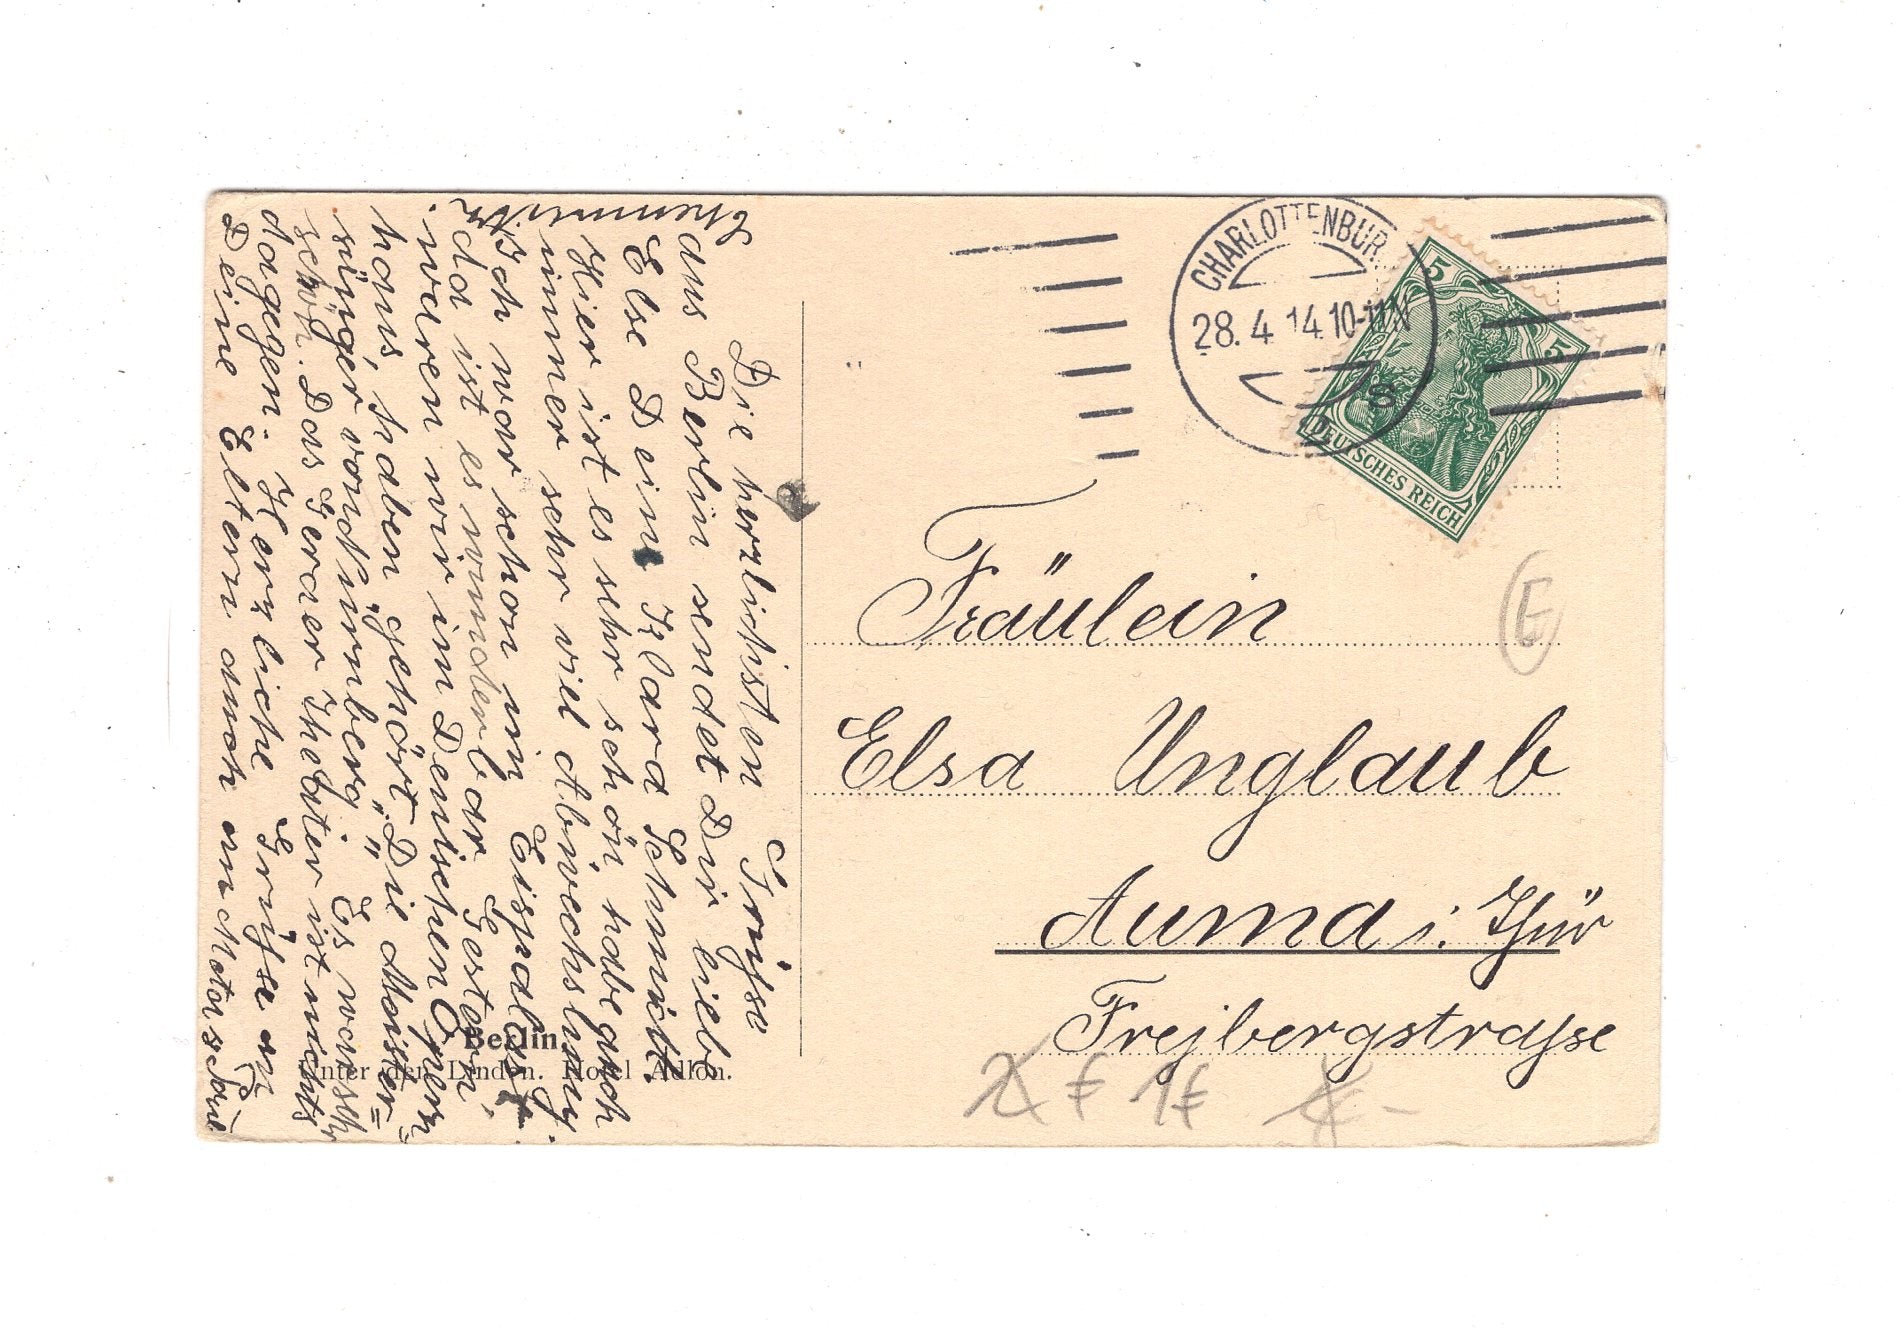 Die herzlichsten Grüsse
aus Berlin sendet Dir liebe
Else Deine Klara Schmidt.
Hier ist es sehr schön habe auch
immer sehr viel Abwechslung.
Ich war schon im Eispalast
da ist es wunderbar Gestern,
waren wir im Deutschen Opern-
haus, haben gehört "Die Meister=
sänger von Nürnberg" Es war sehr
schön. Das Geraer Theater ist nichts
dagegen. Herzliche Grüsse an
Deine Eltern auch an
Berlin.
Unter den Linden. Hotel Adlon.
CHARLOTTENBURG
28.4.14.10-11N
5
5
DEUTSCHES REICH
Fräulein
Elsa Unglaub
Auma i. Thür
Frejbergstrasse
E
1€